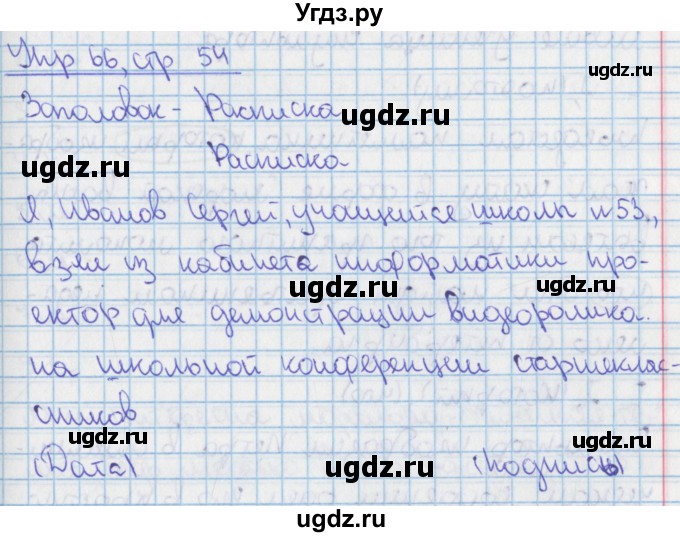 Угдз.ру
Упр 66, стр 54
Заголовок - Расписка
Расписка
Я, Иванов Сергей, учащейся школы №53,
взял из кабинета информатики про-
ектор для демонстрации видеоролика.
на школьной конференции старшеклас-
сников
(Дата) (подпись)
ugdz.ru
ugdz.ru
ugdz.ru
ugdz.ru
ugdz.ru
ugdz.ru
ugdz.ru
ugdz.ru
ugdz.ru
ugdz.ru
ugdz.ru